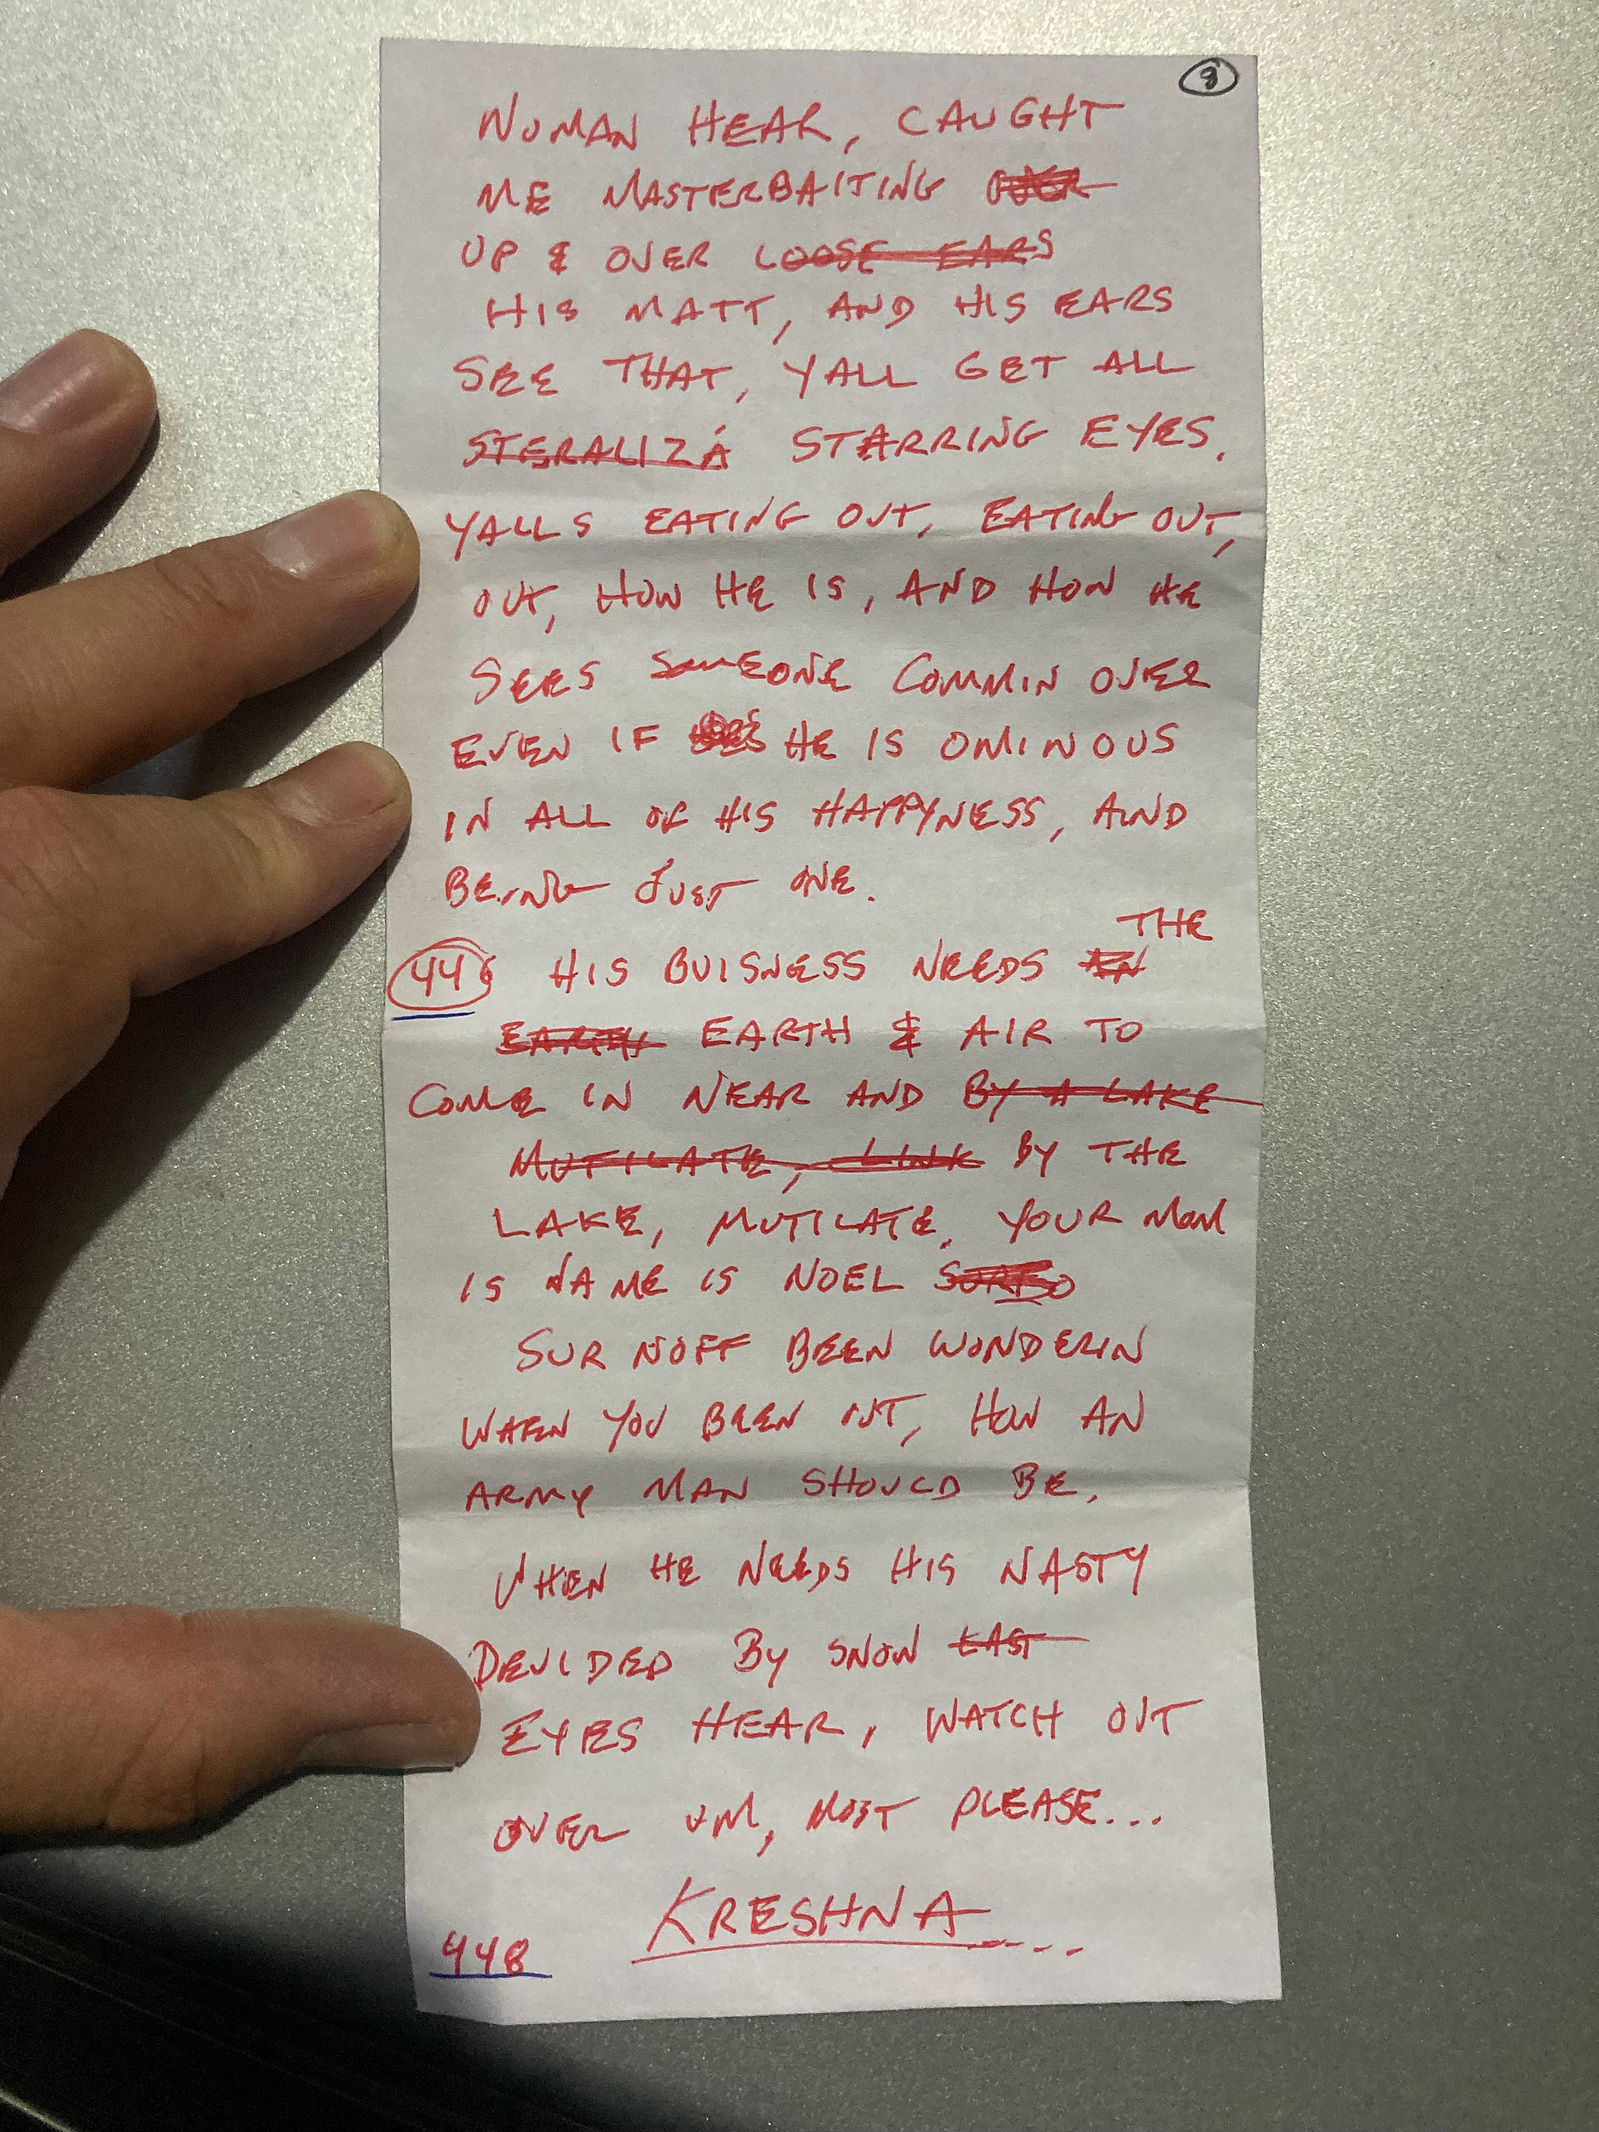 8
NOMAN HEAR, CAUGHT
ME MASTERBAITING
UP & OVER LOOSE EARS
HIS MATT, AND HIS EARS
SEE THAT, YALL GET ALL
STERALIZA STARRING EYES.
YALLS EATING OUT, EATING OUT,
OUT, HOW HE IS, AND HOW HE
SEES SOMEONE COMMIN OVER
EVEN IF HE IS OMINOUS
IN ALL OF HIS HAPPYNESS, AUND
BEING JUST ONE.
THE
446 HIS BUISNESS NEEDS
EARTH EARTH & AIR TO
COME IN NEAR AND BY A LAKE
MUTILATE, LINK BY THE
LAKE, MUTILATE, YOUR MOM
IS NAME IS NOEL
SUR NOFF BEEN WONDERIN
WHEN YOU BEEN OUT, HOW AN
ARMY MAN SHOULD BE,
WHEN HE NEEDS HIS NASTY
DEVIDED BY SNOW LAST
EYES HEAR, WATCH OUT
OVER UM, MOST PLEASE...
KRESHNA....
448